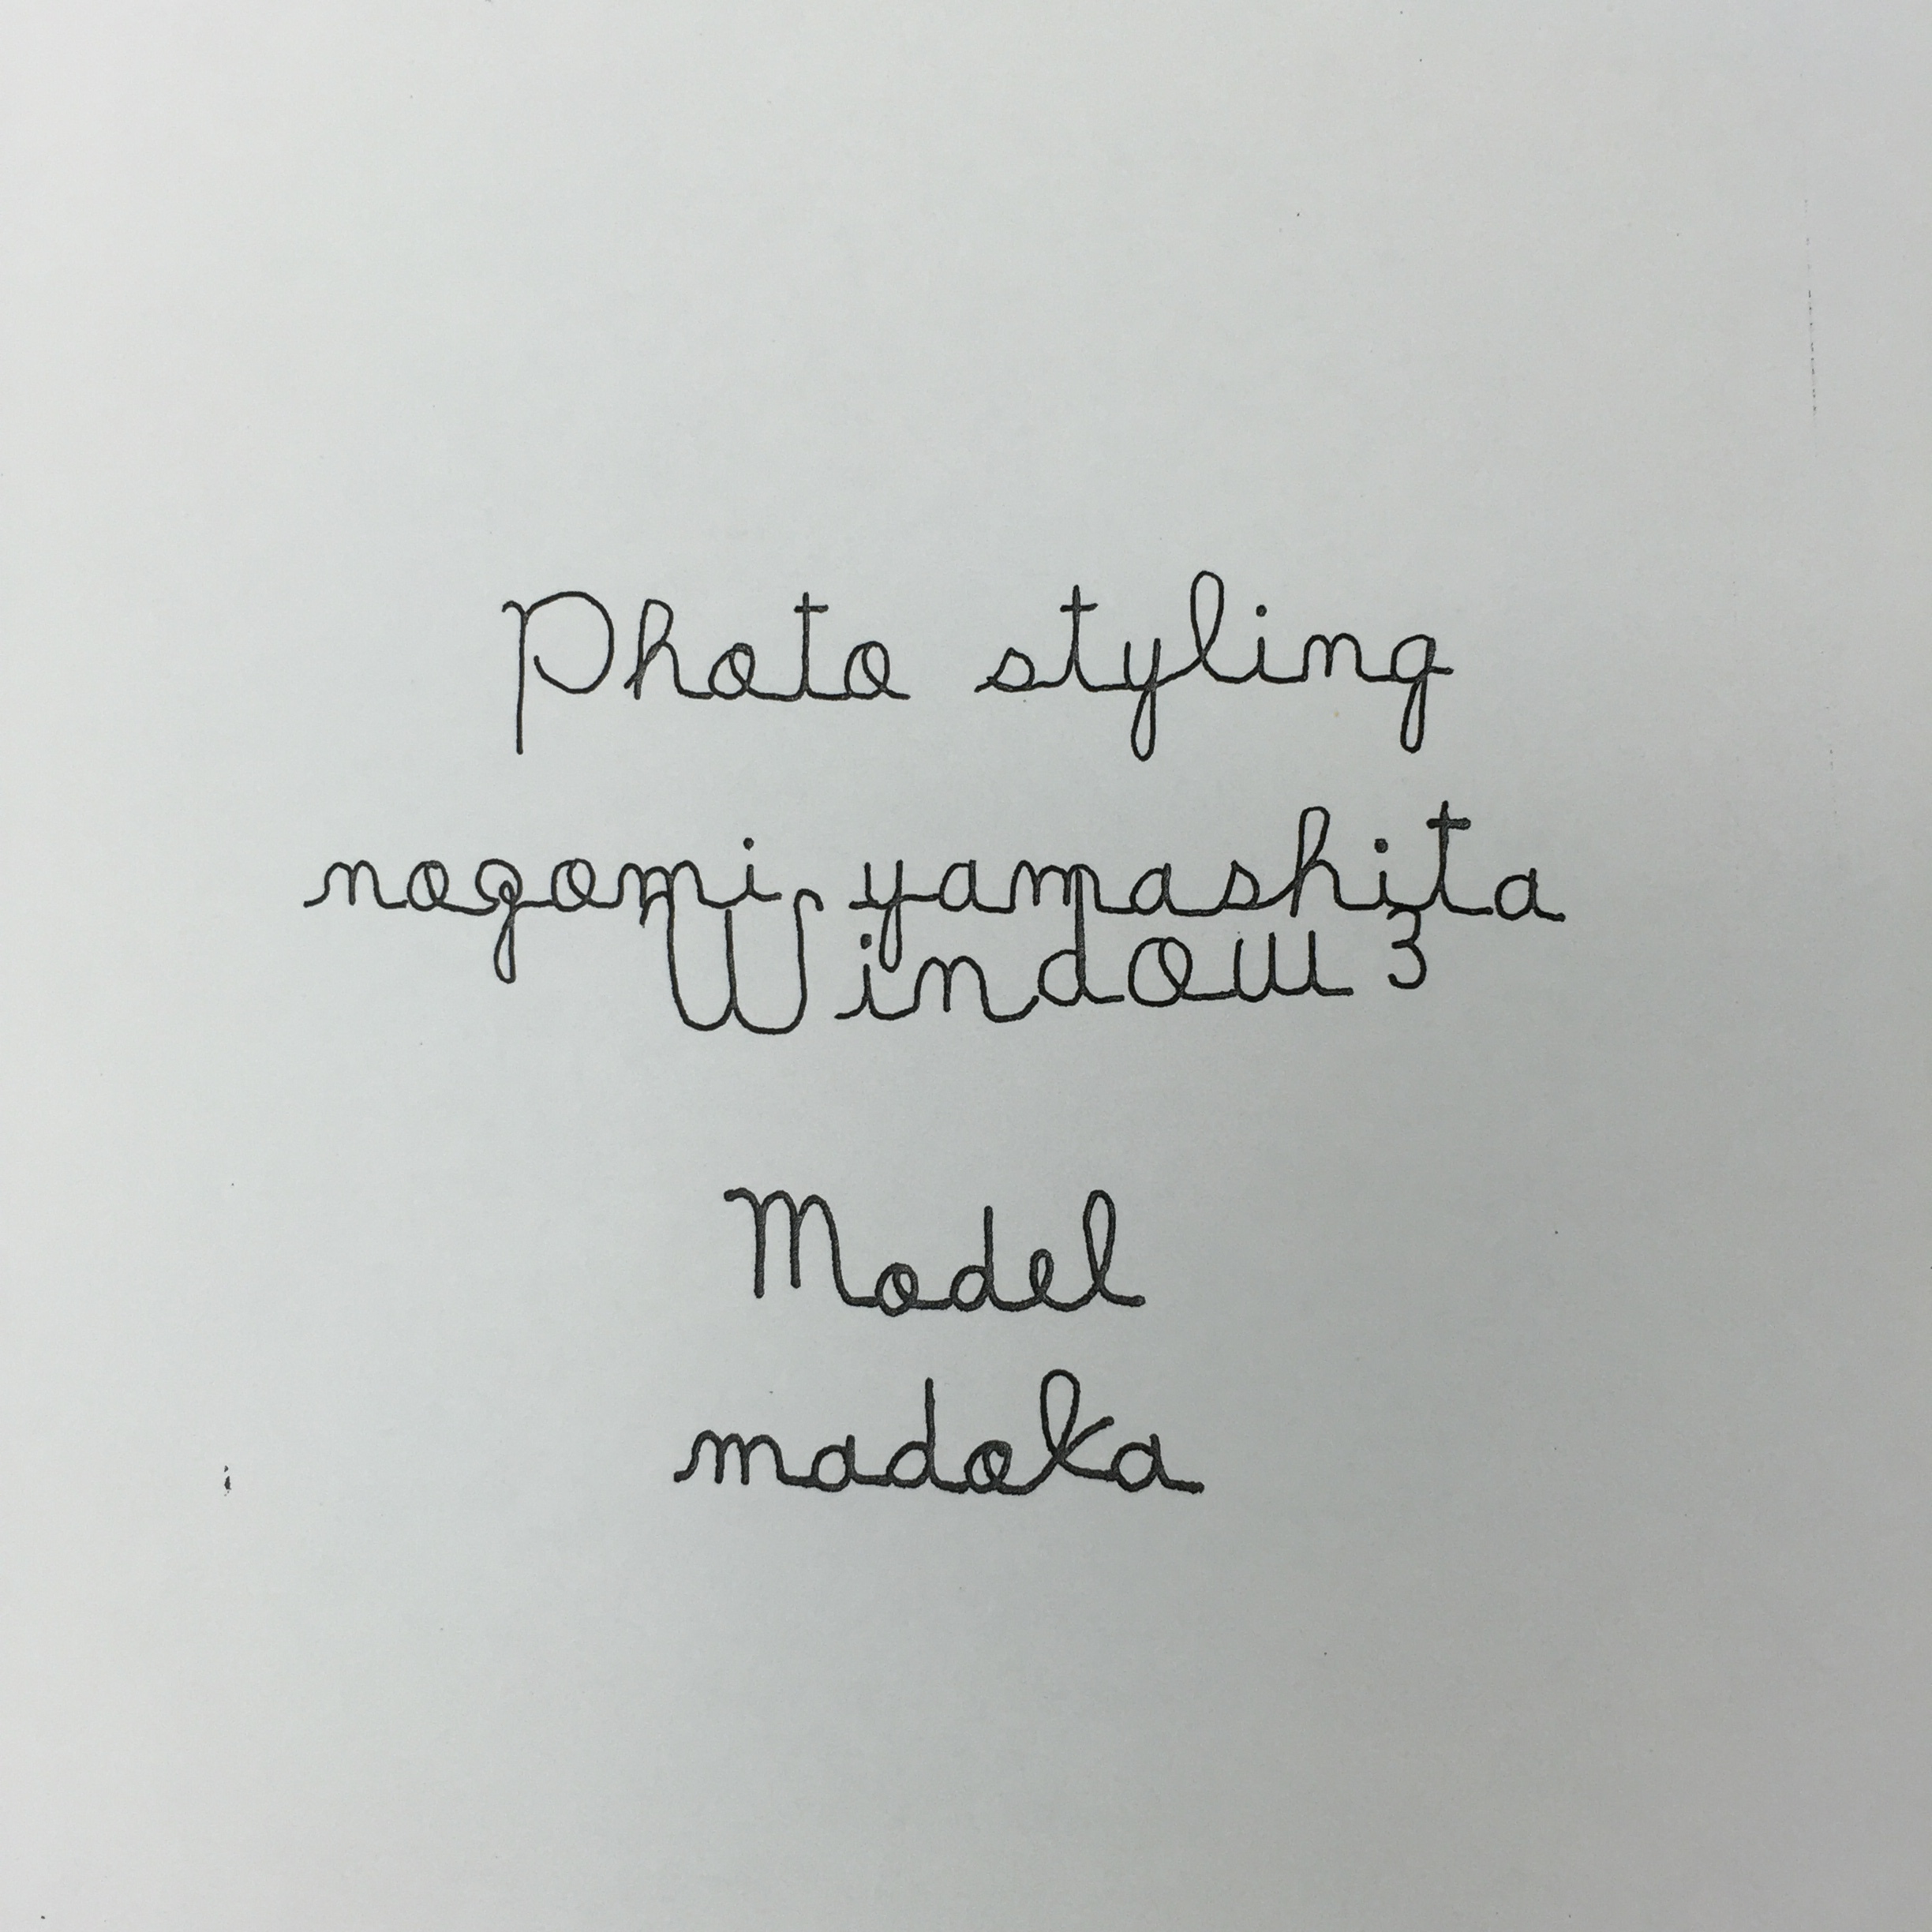 Photo styling
nogomi yamashita
Window 3
Model
madoka